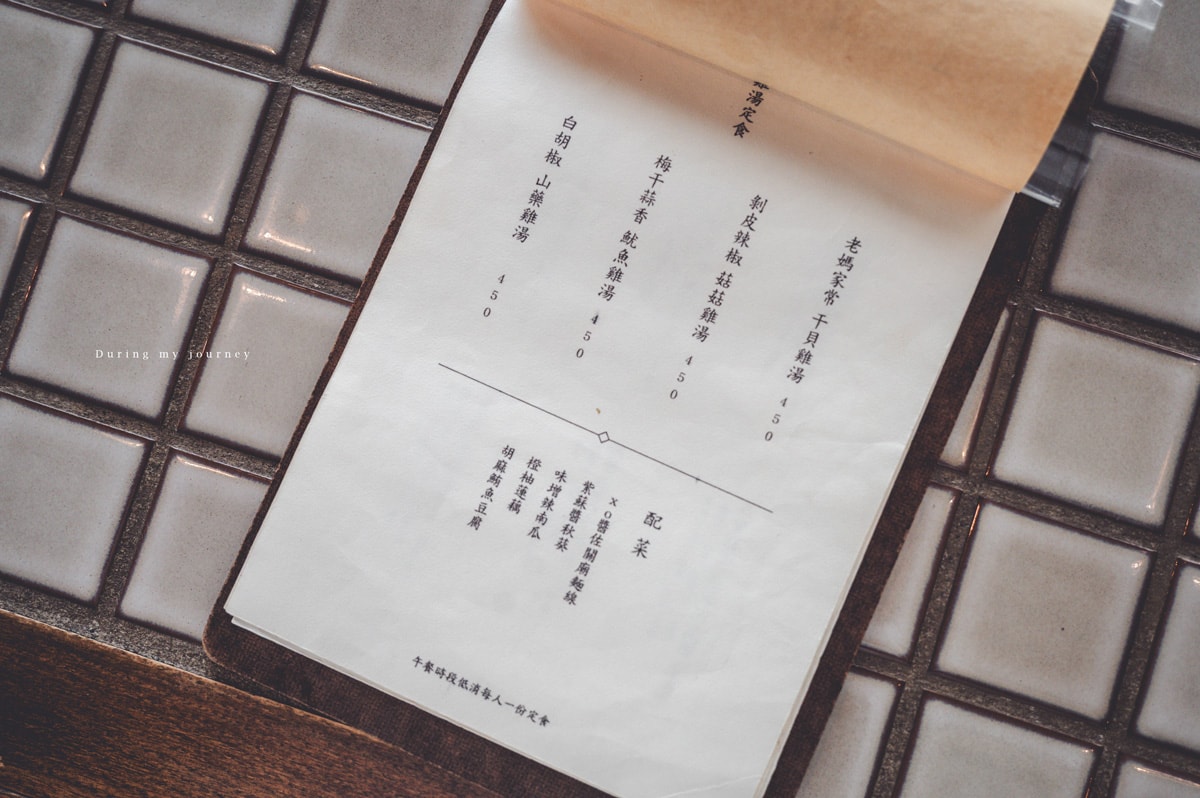 雞湯定食
老媽家常 干貝雞湯 450
剝皮辣椒 菇菇雞湯 450
梅干蒜香 魷魚雞湯 450
白胡椒 山藥雞湯 450
配菜
xo醬佐關廟麵線
紫蘇醬秋葵
味增辣南瓜
橙柚蓮藕
胡麻鮪魚豆腐
午餐時段低消每人一份定食
During my journey